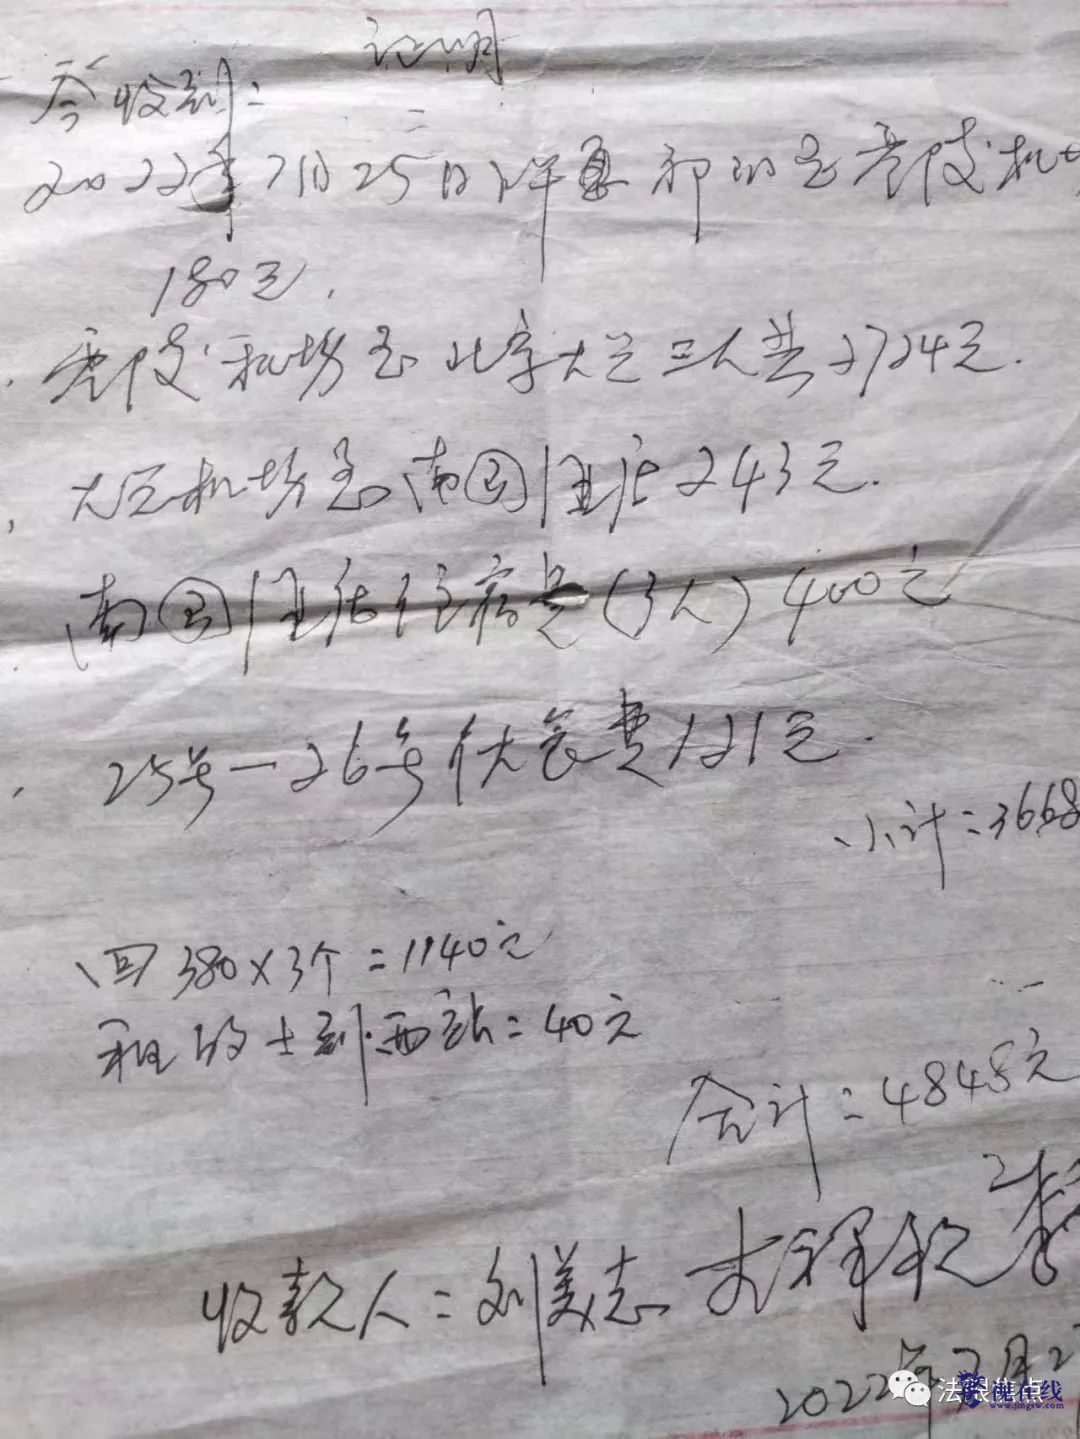 证明
今收到:
2022年7月25日许昌租的至老陂机场
180元.
老陂机场至北京大兴三人共2724元.
大兴机场至南园酒店243元.
南园酒店住宿费(3人)400元
25号一26号伙食费121元.
小计:3668
回380×3个=1140元
租的士到西站=40元
合计:4848元
收款人:刘美志
2022年7月2
法眼焦点
视在线
www.jingsw.com